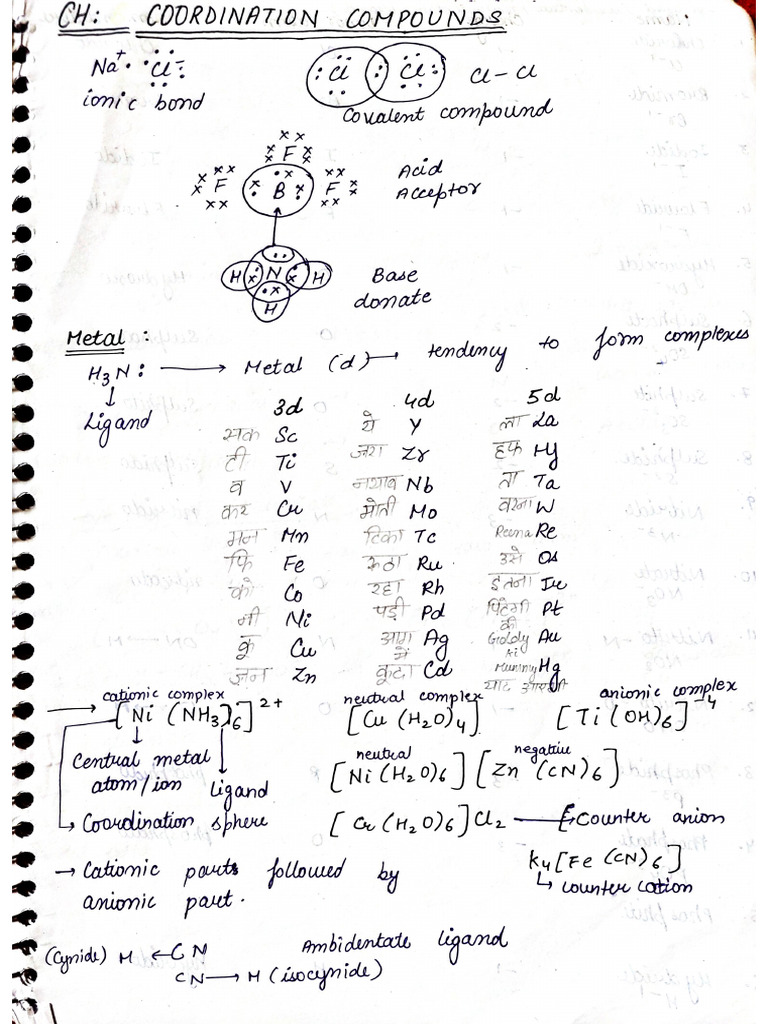 CH: COORDINATION COMPOUNDS
Na+ Cl-
ionic bond
Cl Cl Cl-Cl
Covalent compound
F
F B F
Acid
Acceptor
H N H
H
Base
donate
Metal:
H3N: → Metal (d) → tendency to form complexes
↓
Ligand
3d 4d 5d
सक Sc ये Y ला La
टी Ti जरा Zr हफ Hf
व V नवाब Nb ता Ta
कर Cr मोती Mo वरना W
मन Mn टिका Tc Reena Re
फि Fe रूठा Ru उसे Os
को Co रहा Rh इतना Ir
नी Ni पड़ी Pd पिटेगी Pt
कु Cu आग में Ag की Goldy Au
जन Zn कूदा Cd ki Mummy Hg
याद आएगी
cationic complex neutral complex anionic complex
→ [Ni (NH3)6]2+ [Cu (H2O)4] [Ti(OH)6]-4
Central metal atom/ion
ligand
Coordination sphere
neutral negative
[Ni(H2O)6] [Zn (CN)6]
[Cr(H2O)6]Cl2 → Counter anion
→ Cationic parts followed by
anionic part.
K4[Fe (CN)6]
↳ counter cation
(Cynide) M ← CN Ambidentate ligand
CN → M (isocynide)